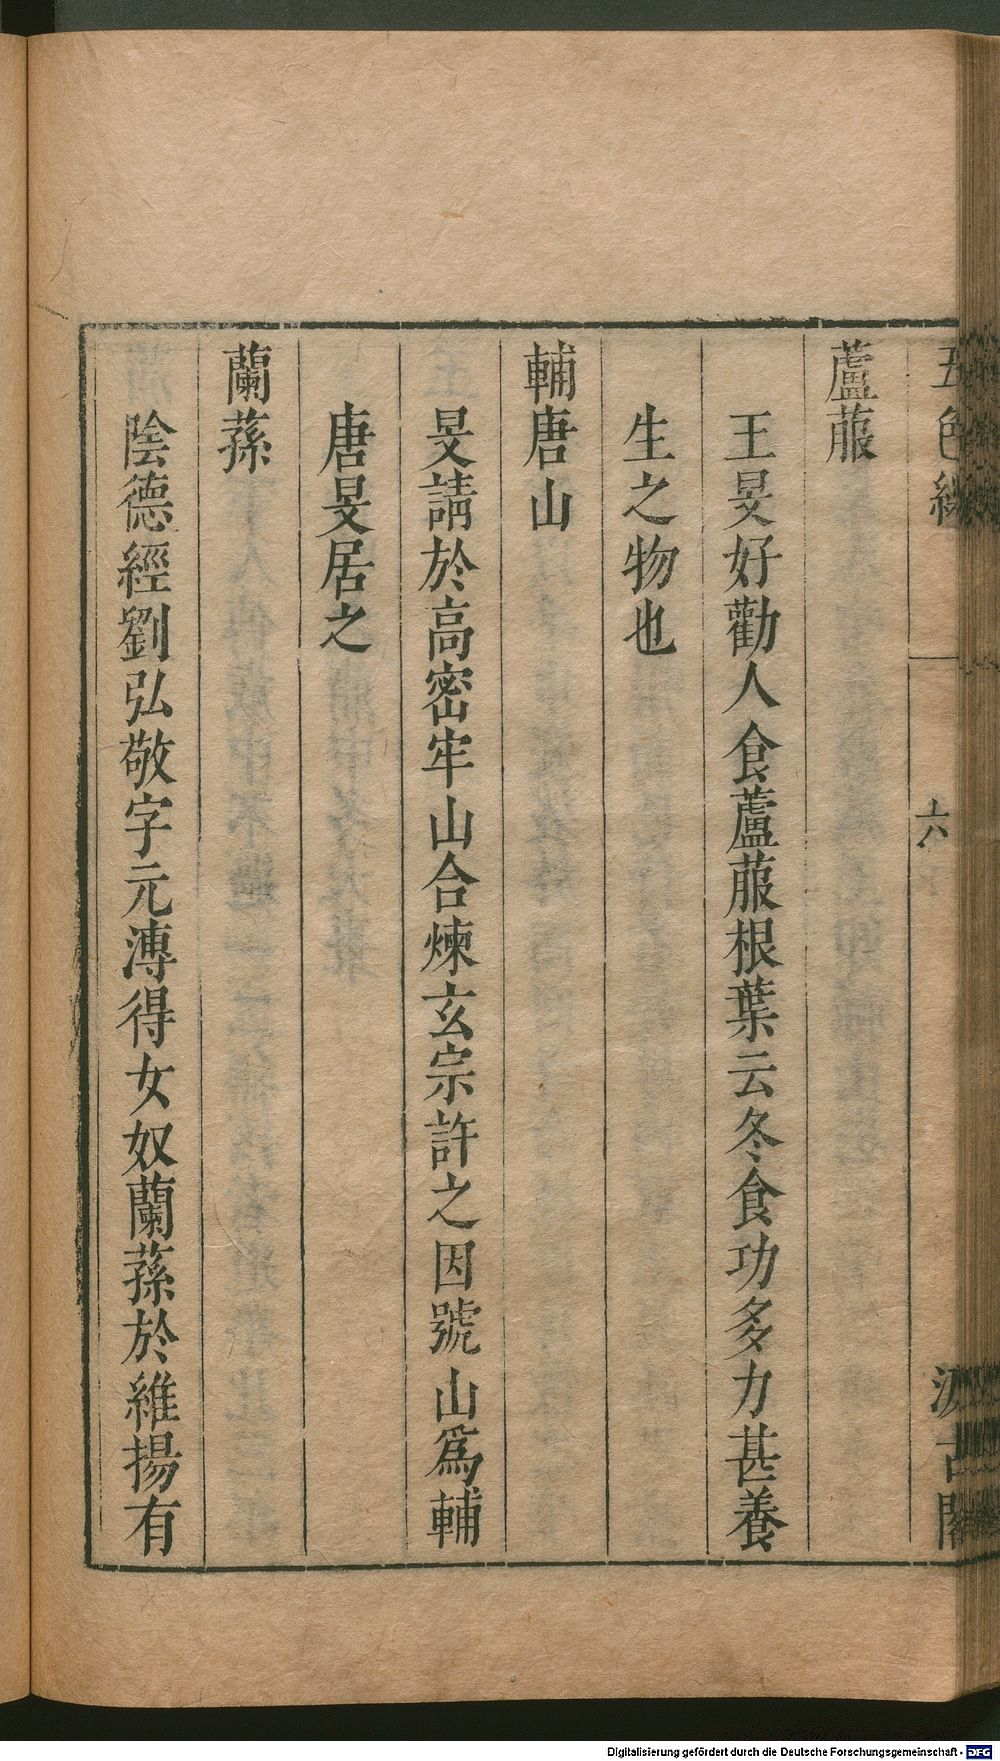 五色線
六
汲古閣
蘆菔
王旻好勸人食蘆菔根葉云冬食功多力甚養
生之物也
輔唐山
旻請於高密牢山合煉玄宗許之因號山爲輔
唐旻居之
蘭蓀
陰德經劉弘敬字元溥得女奴蘭蓀於維揚有
Digitalisierung gefördert durch die Deutsche Forschungsgemeinschaft - DFG